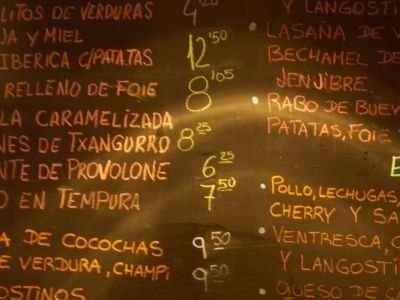 LITOS DE VERDURAS 4'25
JA Y MIEL
IBERICA C/PATATAS 12'50
RELLENO DE FOIE 8'105
LA CARAMELIZADA
NES DE TXANGURRO 8'25
NTE DE PROVOLONE 6'25
O EN TEMPURA 7'50
A DE COCOCHAS 9'50
E VERDURA, CHAMPI 9'50
GOSTINOS
Y LANGOSTI
LASAÑA DE V
BECHAMEL DE
JENJIBRE.
RABO DE BUEY
PATATAS, FOIE
POLLO, LECHUGAS,
CHERRY Y SA
VENTRESCA, C
Y LANGOSTI
QUESO DE C